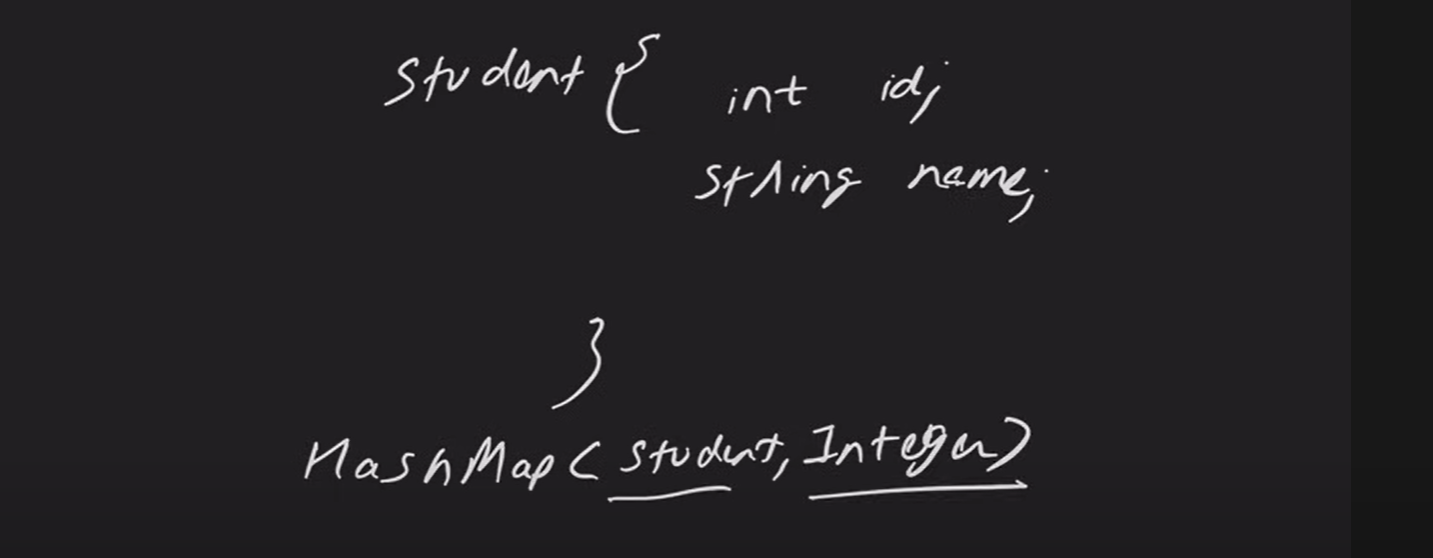 Student { int id;
string name;
}
HashMap< Student, Integer>